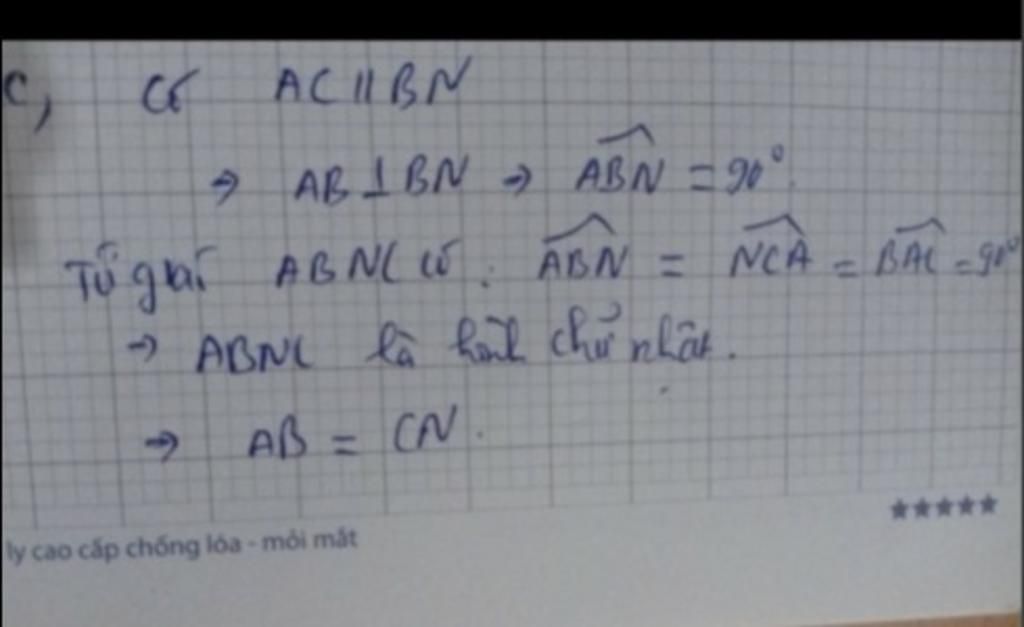 c, Có AC // BN
→ AB ⊥ BN → ABN = 90°.
Tứ giác ABNC có : ABN = NCA = BAC = 90°
→ ABNC là hình chữ nhật.
→ AB = CN.
ly cao cấp chống lóa - mỏi mắt
★★★★★